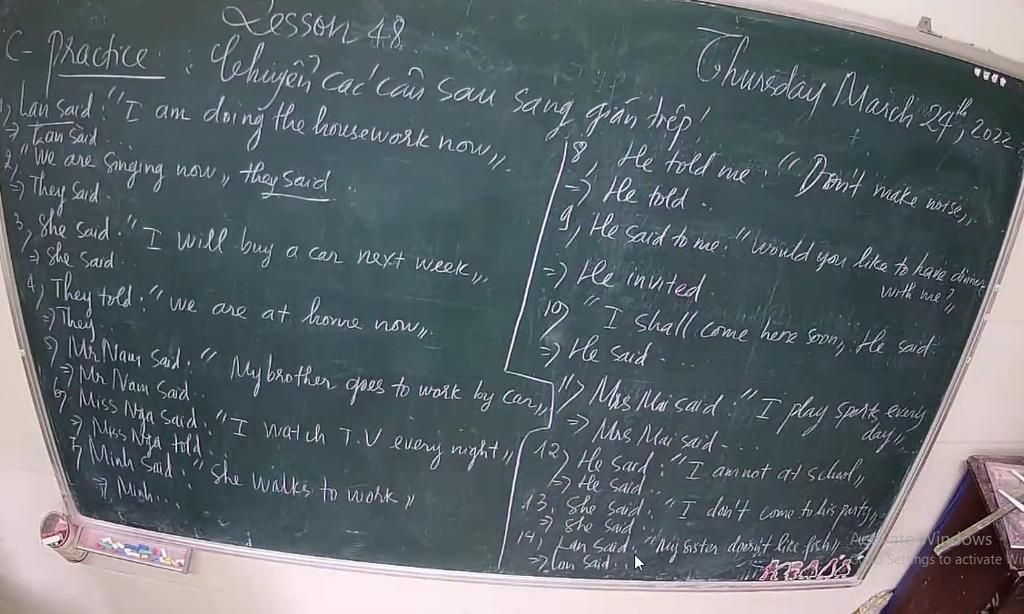 Lesson 48
Thursday March 24th, 2022
C- Practice : Chuyển các câu sau sang gián tiếp!
1, Lan said: "I am doing the housework now,,.
=> Lan said
2, "We are singing now,, they said ..
=> They said.
3, She said: "I will buy a car next week,,.
=> She said.
4, They told: "we are at home now,,.
=> They..
5, Mr. Nam said: " My brother goes to work by car,,
=> Mr Nam said..
6, Miss Nga said: "I watch T.V every night,,
=> Miss Nga told.
7, Minh said: " she walks to work,,
=> Minh...
8, He told me: "Don't make noise,,.
=> He told ..
9, He said to me: "would you like to have dinner
with me?,,
=> He invited.
10, "I shall come here soon,, He said.
=> He said ..
11, Mrs Mai said: "I play sports every
day,,
=> Mrs Mai said...
12, He said: "I am not at school,,
=> He said..
13. She said: "I don't come to his party,,
=> She said..
14, Lan said: "My sister doesn't like fish,,
=> Lan said..
Activate Windows
Go to Settings to activate Wi